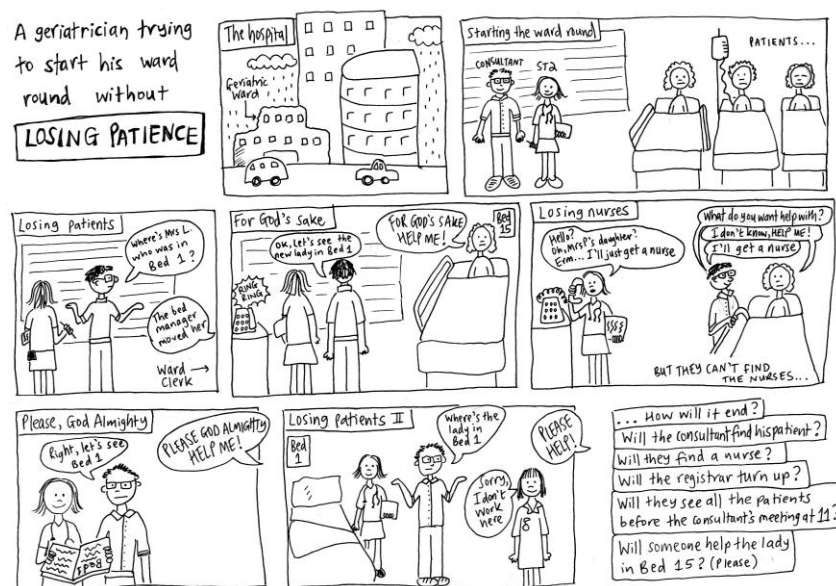 A geriatrician trying
to start his ward
round without
LOSING PATIENCE
The hospital
Geriatric
Ward
Starting the ward round
CONSULTANT
ST2
PATIENTS...
Losing patients
Where's Mrs L.
who was in
Bed 1?
The bed
manager
moved her
Ward
Clerk →
For God's sake
RING
RING
OK, Let's see the
new lady in Bed 1
FOR GOD'S SAKE
HELP ME!
Bed
15
Losing nurses
Hello?
Oh, Mrs P's daughter?
Erm... I'll just get a nurse
What do you want help with?
I don't know, HELP ME!
I'll get a nurse
BUT THEY CAN'T FIND
THE NURSES...
Please, God Almighty
Right, let's see
Bed 1
Bed 1
PLEASE GOD ALMIGHTY
HELP ME!
Losing patients II
Bed
1
Where's the
lady in
Bed 1
Sorry,
I don't
work
here
PLEASE
HELP!
... How will it end?
Will the consultant find his patient?
Will they find a nurse?
Will the registrar turn up?
Will they see all the patients
before the consultant's meeting at 11?
Will someone help the lady
in Bed 15? (Please)